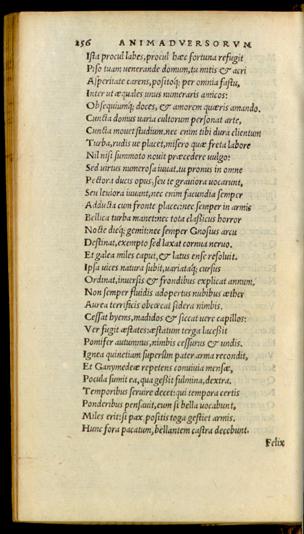 256 ANIMADVERSORVM
Ista procul labes, procul hæc fortuna refugit
Piso tuam uenerande domum, tu mitis & acri
Asperitate carens, positoq; per omnia fastu,
Inter ut æquales unus numeraris amicos:
Obsequiumq; doces, & amorem quæris amando.
Cuncta domus uaria cultorum personat arte,
Cuncta mouet studium. nec enim tibi dura clientum
Turba, rudis ue placet, misero quæ freta labore
Nil nisi summoto nouit præcedere uulgo:
Sed uirtus numerosa iuuat, tu pronus in omne
Pectora ducis opus, seu te grauiora uocarunt,
Seu leuiora iuuant, nec enim facundia semper
Adducta cum fronte placet: nec semper in armis
Bellica turba manet: nec tota classicus horror
Nocte dieq; gemit: nec semper Gnosius arcu
Destinat, exempto sed laxat cornua neruo.
Et galea miles caput, & latus ense resoluit.
Ipsa uices natura subit, uariataq; cursus
Ordinat, inuersis & frondibus explicat annum,
Non semper fluidis adopertus nubibus æther
Aurea terrificis obcæcat sidera nimbis.
Cessat hyems, madidos & siccat uere capillos:
Ver fugit æstates: æstatum terga lacessit
Pomifer autumnus, nimbis cessurus & undis.
Ignea quinetiam superûm pater arma recondit,
Et Ganymedeæ repetens conuiuia mensæ,
Pocula sumit ea, qua gessit fulmina, dextra.
Temporibus seruire decet: qui tempora certis
Ponderibus pensauit, eum si bella uocabunt,
Miles erit: si pax, positis toga gestiet armis.
Hunc fora pacatum, bellantem castra decebunt.
Felix